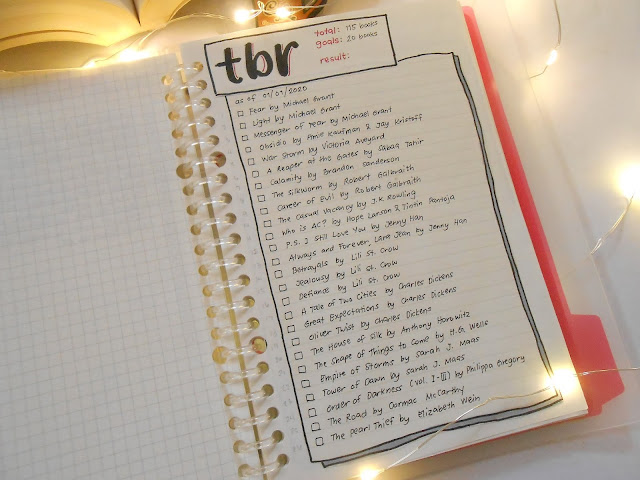 tbr
total: 115 books
goals: 20 books
result:
as of 01/01/2020
Fear by Michael Grant
Light by Michael Grant
Messenger of Fear by Michael Grant
Obsidio by Amie Kaufman & Jay Kristoff
War Storm by Victoria Aveyard
A Reaper at the Gates by Sabaa Tahir
Calamity by Brandon Sanderson
The Silkworm by Robert Galbraith
Career of Evil by Robert Galbraith
The Casual Vacancy by J.K. Rowling
Who is AC? by Hope Larson & Tintin Pantoja
P.S. I Still Love You by Jenny Han
Always and Forever, Lara Jean by Jenny Han
Betrayals by Lili St. Crow
Jealousy by Lili St. Crow
Defiance by Lili St. Crow
A Tale of Two Cities by Charles Dickens
Great Expectations by Charles Dickens
Oliver Twist by Charles Dickens
The House of Silk by Anthony Horowitz
The Shape of Things to Come by H.G. Wells
Empire of Storms by Sarah J. Maas
Tower of Dawn by Sarah J. Maas
Order of Darkness (vol. I-III) by Philippa Gregory
The Road by Cormac McCarthy
The Pearl Thief by Elizabeth Wein